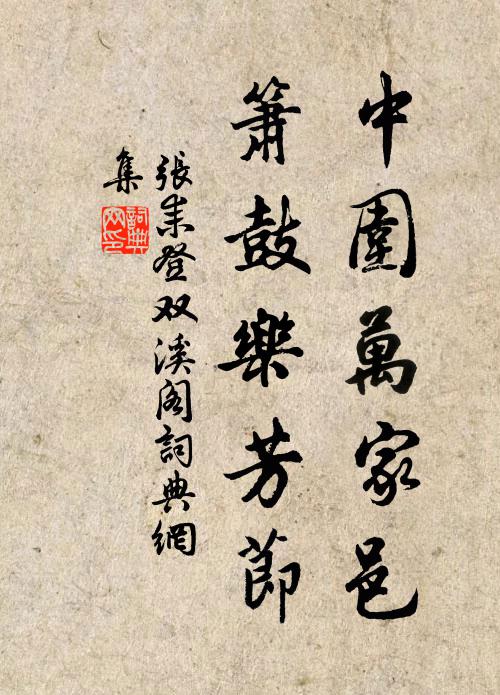 中圍萬家邑
簫鼓樂芳節
張耒登双溪阁詞典網
集
詞典
网印